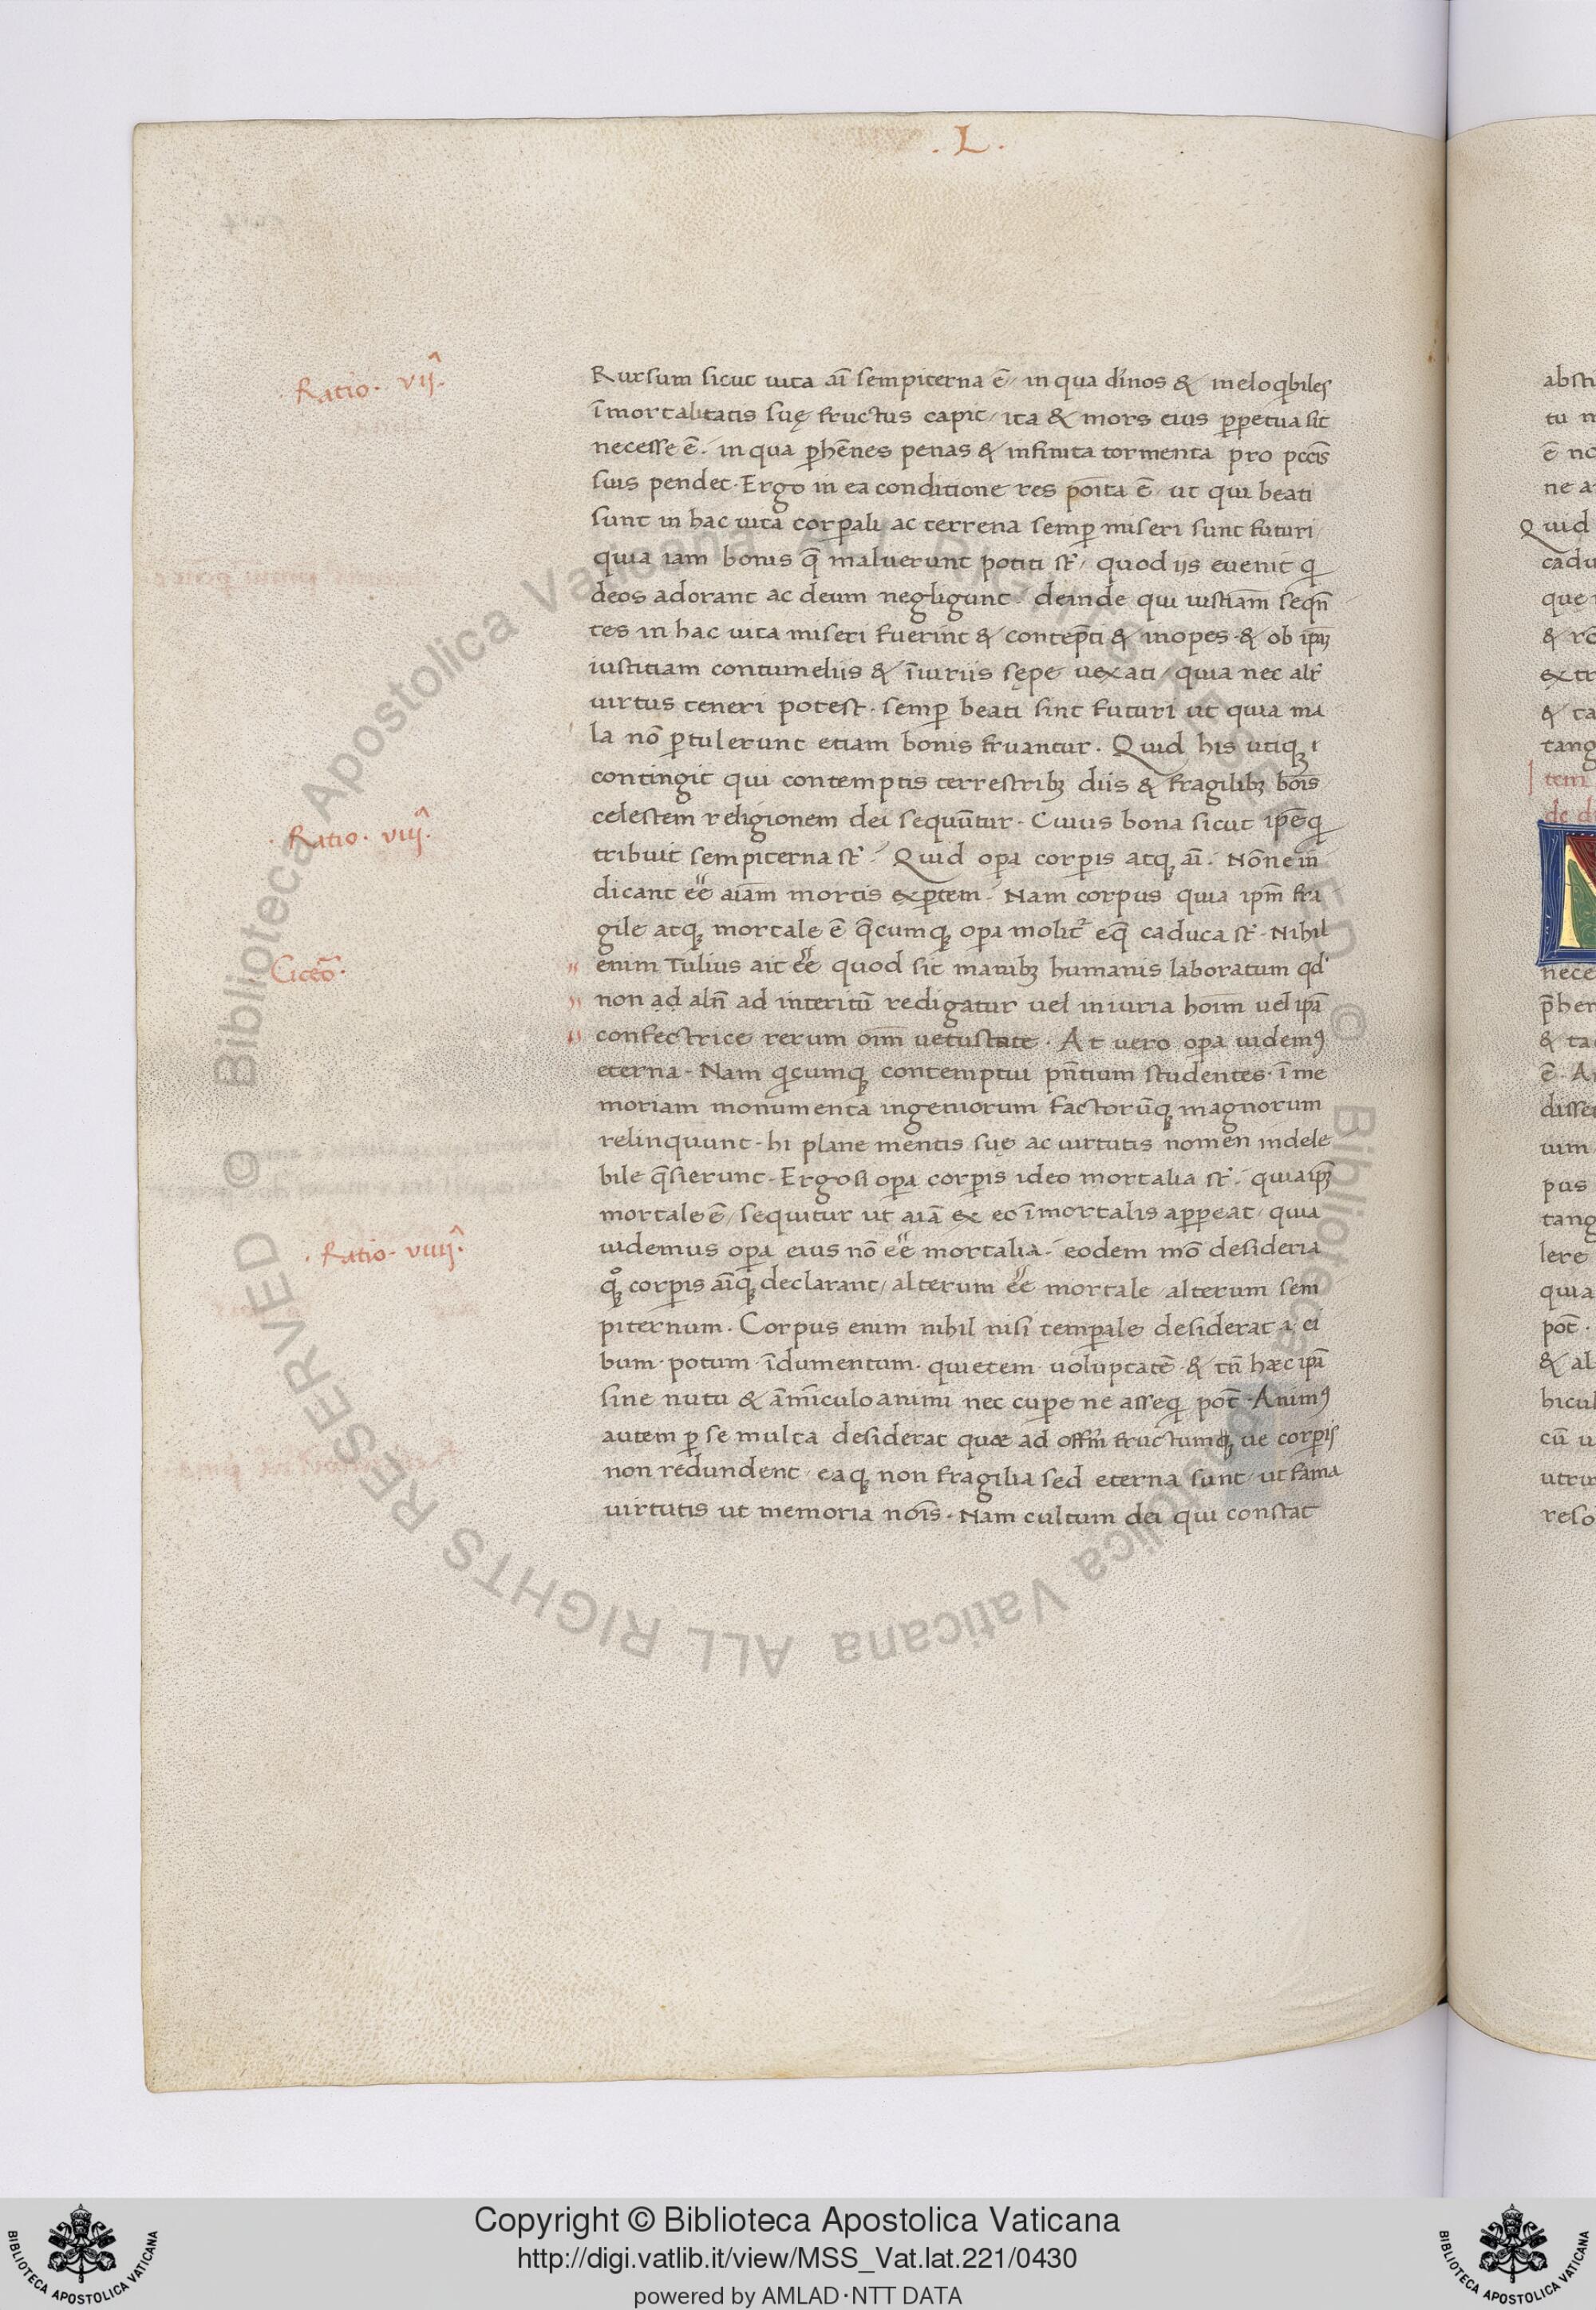 . L .
Ratio · vij^.
Rursum sicut uita aī sempiterna ē / in qua diīnos & ineloqbiles
īmortalitatis suę fructus capit / ita & mors eius ꝑpetua sit
necesse ē . in qua ꝑhēnes penas & infinita tormenta pro pccīs
suis pendet · Ergo in ea conditione res poīta ē / ut qui beati
sunt in hac uita corꝑali ac terrena semꝑ miseri sunt futuri /
quia iam bonis q̄ maluerunt potiti st̄ / quod ijs euenit qi
deos adorant ac deum negligunt · deinde qui iustiam̄ seqn̄
tes in hac uita miseri fuerint & contēpti & inopes · & ob ipaꝫ
iustitiam contumeliis & īiuriis sępe uexati / quia nec alr̄
uirtus teneri potest · semꝑ beati sint futuri ut quia ma
la nō ꝑtulerunt etiam bonis fruantur . Quid his utiqꝫ ı
contingit qui contemptis terrestribꝫ diis & fragilibꝫ boīs
celestem religionem dei sequūtur · Cuius bona sicut ipē qi
Ratio · viij^.
tribuit sempiterna st̄ · Quid oꝑa corꝑis atqꝫ aī · Nōne in
dicant eē aiam̄ mortis exꝑtem · Nam corpus quia ipm̄ fra
gile atqꝫ mortale ē q̄cumqꝫ oꝑa molit᷑ eq̄ caduca st̄ · Nihil
Ciceō ·
enim Tulius ait eē quod sit manibꝫ humanis laboratum qd'
non ad aln̄ ad interitū redigatur uel iniuria hoīm uel ipā
confectrice rerum oīm uetustate · At uero oꝑa uidemꝯ
eterna · Nam qicumqꝫ contemptui pn̄tium studentes · ī me
moriam monumenta ingeniorum factorūqꝫ magnorum
relinquunt · hi plane mentis suę ac uirtutis nomen indele
bile q̄sierunt · Ergo si oꝑa corꝑis ideo mortalia st̄ · quia ipꝫ
mortale ē / sequitur ut aiā ex eo īmortalis apꝑeat / quia
uidemus oꝑa eius nō eē mortalia · eodem mō desideria
Ratio · viiij^.
qꝫo corꝑis aīqꝫ declarant / alterum eē mortale / alterum sem
piternum · Corpus enim nihil nisi temꝑale desiderat · i · ci
bum · potum · īdumentum · quietem · uoluptatē · & tn̄ hæc ipā
sine nutu & āmīculo animi nec cuꝑe ne asseqi pot̄ · Animꝯ
autem ꝑ se multa desiderat quæ ad offm̄ fructumqꝫ ue corꝑis
non redundent · eaqꝫ non fragilia sed eterna sunt / ut fama
uirtutis ut memoria noīs · Nam cultum dei qui constat
Copyright © Biblioteca Apostolica Vaticana
http://digi.vatlib.it/view/MSS_Vat.lat.221/0430
powered by AMLAD·NTT DATA